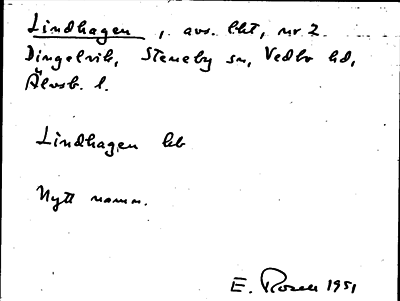 Lindhagen, avs. lht, nr 2
Dingelvik, Steneby sn, Vedbo hd,
Älvsb. l.
Lindhagen hb
Nytt namn.
E. Rosell 1951